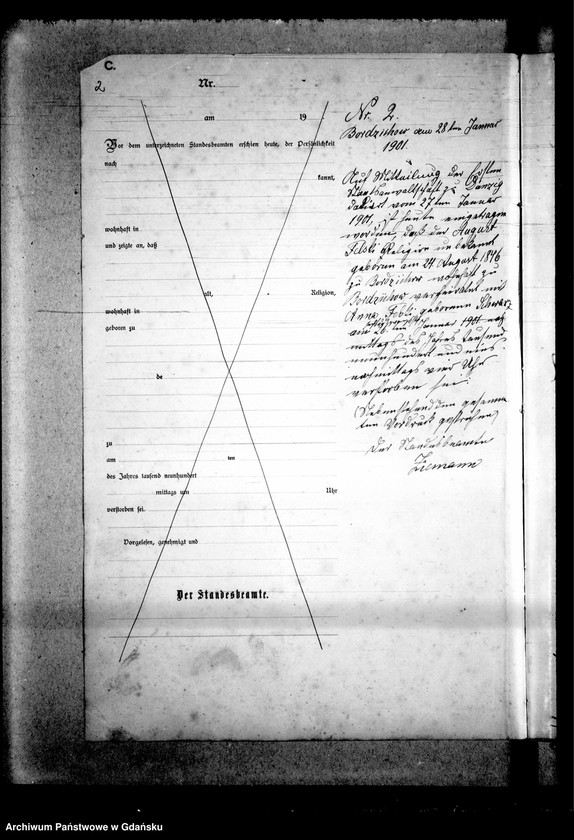 C.
2
Nr.
am 19
Vor dem unterzeichneten Standesbeamten erschien heute, der Persönlichkeit
nach
kannt,
wohnhaft in
und zeigte an, daß
alt, Religion,
wohnhaft in
geboren zu
de
zu
am ten
des Jahres tausend neunhundert
mittags um Uhr
verstorben sei.
Vorgelesen, genehmigt und
Der Standesbeamte.
Nr. 2.
Bordzichow am 28ten Januar
1901.
Auf Mitteilung der Ersten
Staatsanwaltschaft zu Danzig
datiert vom 27ten Januar
1901, ist heute eingetragen
worden, daß der August
Felski Religion unbekannt
geboren am 24 August 1846
zu Bordzichow wohnhaft zu
Bordzichow verheiratet mit
Anna Felski geborenen
am Januar 1901 nach
mittags des Jahres tausend
neunhundert und eins
nachmittags vier Uhr
verstorben sei.
(Nebenstehend den gesamm
ten Vordruck gestrichen)
Der Standesbeamte
Ziemann
Archiwum Państwowe w Gdańsku